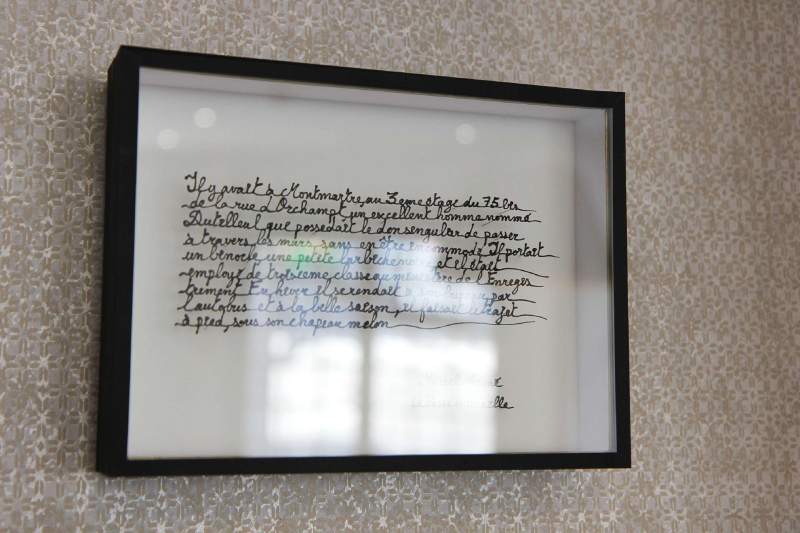 Il y avait à Montmartre, au 3eme étage du 75 bis
de la rue d'Orchampt un excellent homme nommé
Dutilleul que possedait le don singulier de passer
à travers les murs, sans en être incommodé Il portait
un binocle une petite barbiche noire et il était
employé de troisieme classe au ministère de l'Enregis
trement En hiver il se rendait à son bureau par
l'autobus et à la belle saison, il faisait le trajet
à pied, sous son chapeau melon
Marcel
le